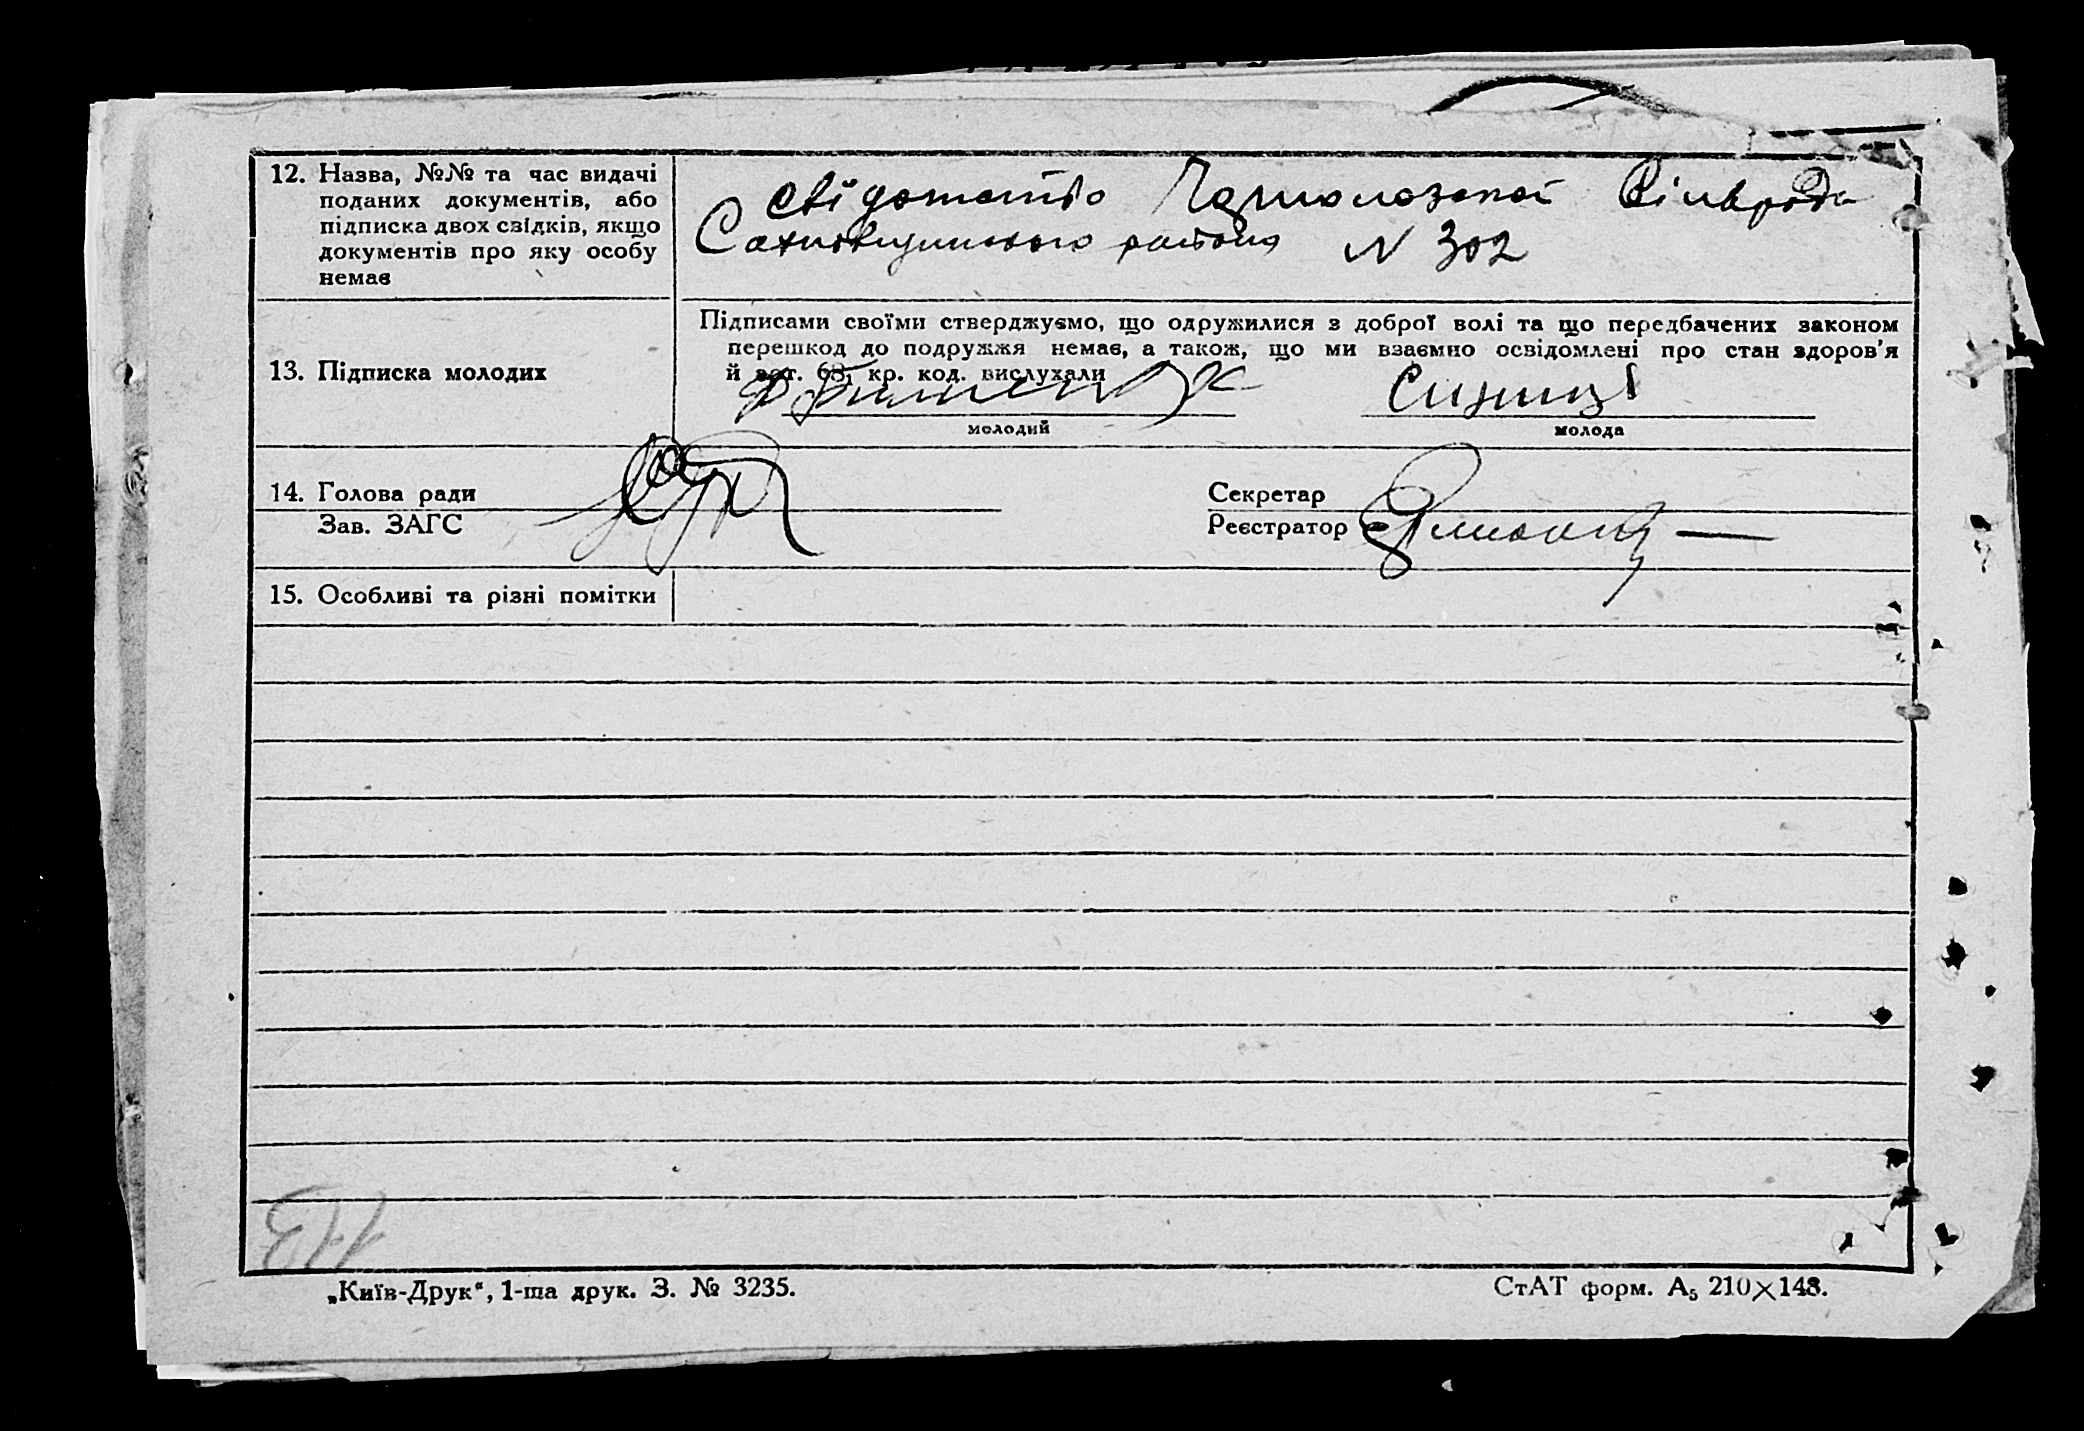 12. Назва, №№ та час видачі
поданих документів, або
підписка двох свідків, якщо
документів про яку особу
немає
свідотство Сільради
Сахновщинського району N 302
13. Підписка молодих
Підписами своїми стверджуємо, що одружилися з доброї волі та що передбачених законом
перешкод до подружжя немає, а також, що ми взаємно освідомлені про стан здоров'я
й арт. 63, кр. код. вислухали
молодий
Синиця
молода
14. Голова ради
Зав. ЗАГС
Секретар
Реєстратор
15. Особливі та різні помітки
113
„Київ-Друк“, 1-ша друк. З. № 3235.
СтАТ форм. А₅ 210×148.